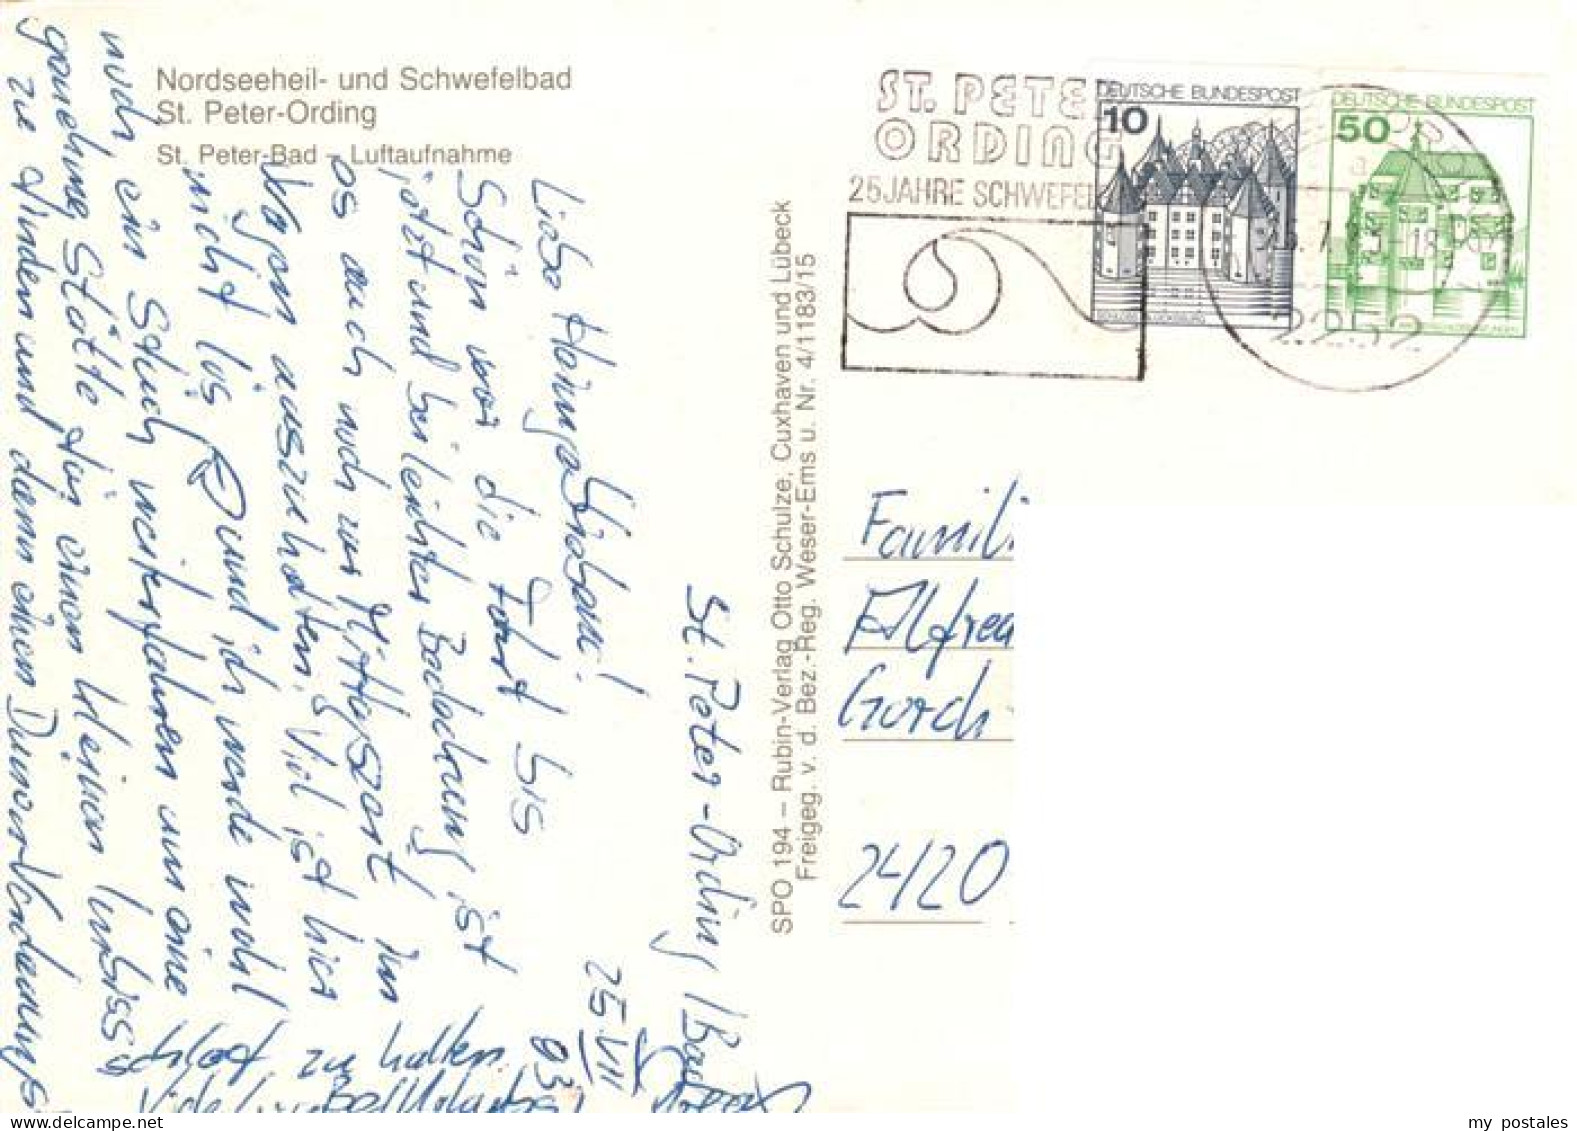 Nordseeheil- und Schwefelbad
St. Peter-Ording
St. Peter-Bad – Luftaufnahme
ST. PETE
ORDING
25 JAHRE SCHWEFEL
DEUTSCHE BUNDESPOST
10
DEUTSCHE BUNDESPOST
50
2252
SPO 194 – Rubin-Verlag Otto Schulze, Cuxhaven und Lübeck
Freigeg. v. d. Bez.-Reg. Weser-Ems u. Nr. 4/1183/15
St. Peter-Ording
25. VII
83
Schön war die Fahrt bis
jetzt und bei leichter Bedeckung ist
es auch noch zur Mittagszeit im
Wagen auszuhalten. Viel ist hier
nicht los und ich werde wohl
noch ein Stück weiterfahren um eine
Stätte für einen kleinen Imbiss
zu finden und dann einen
Schlaf zu halten.
Famili
Alfred
Gorch
2420
my postales